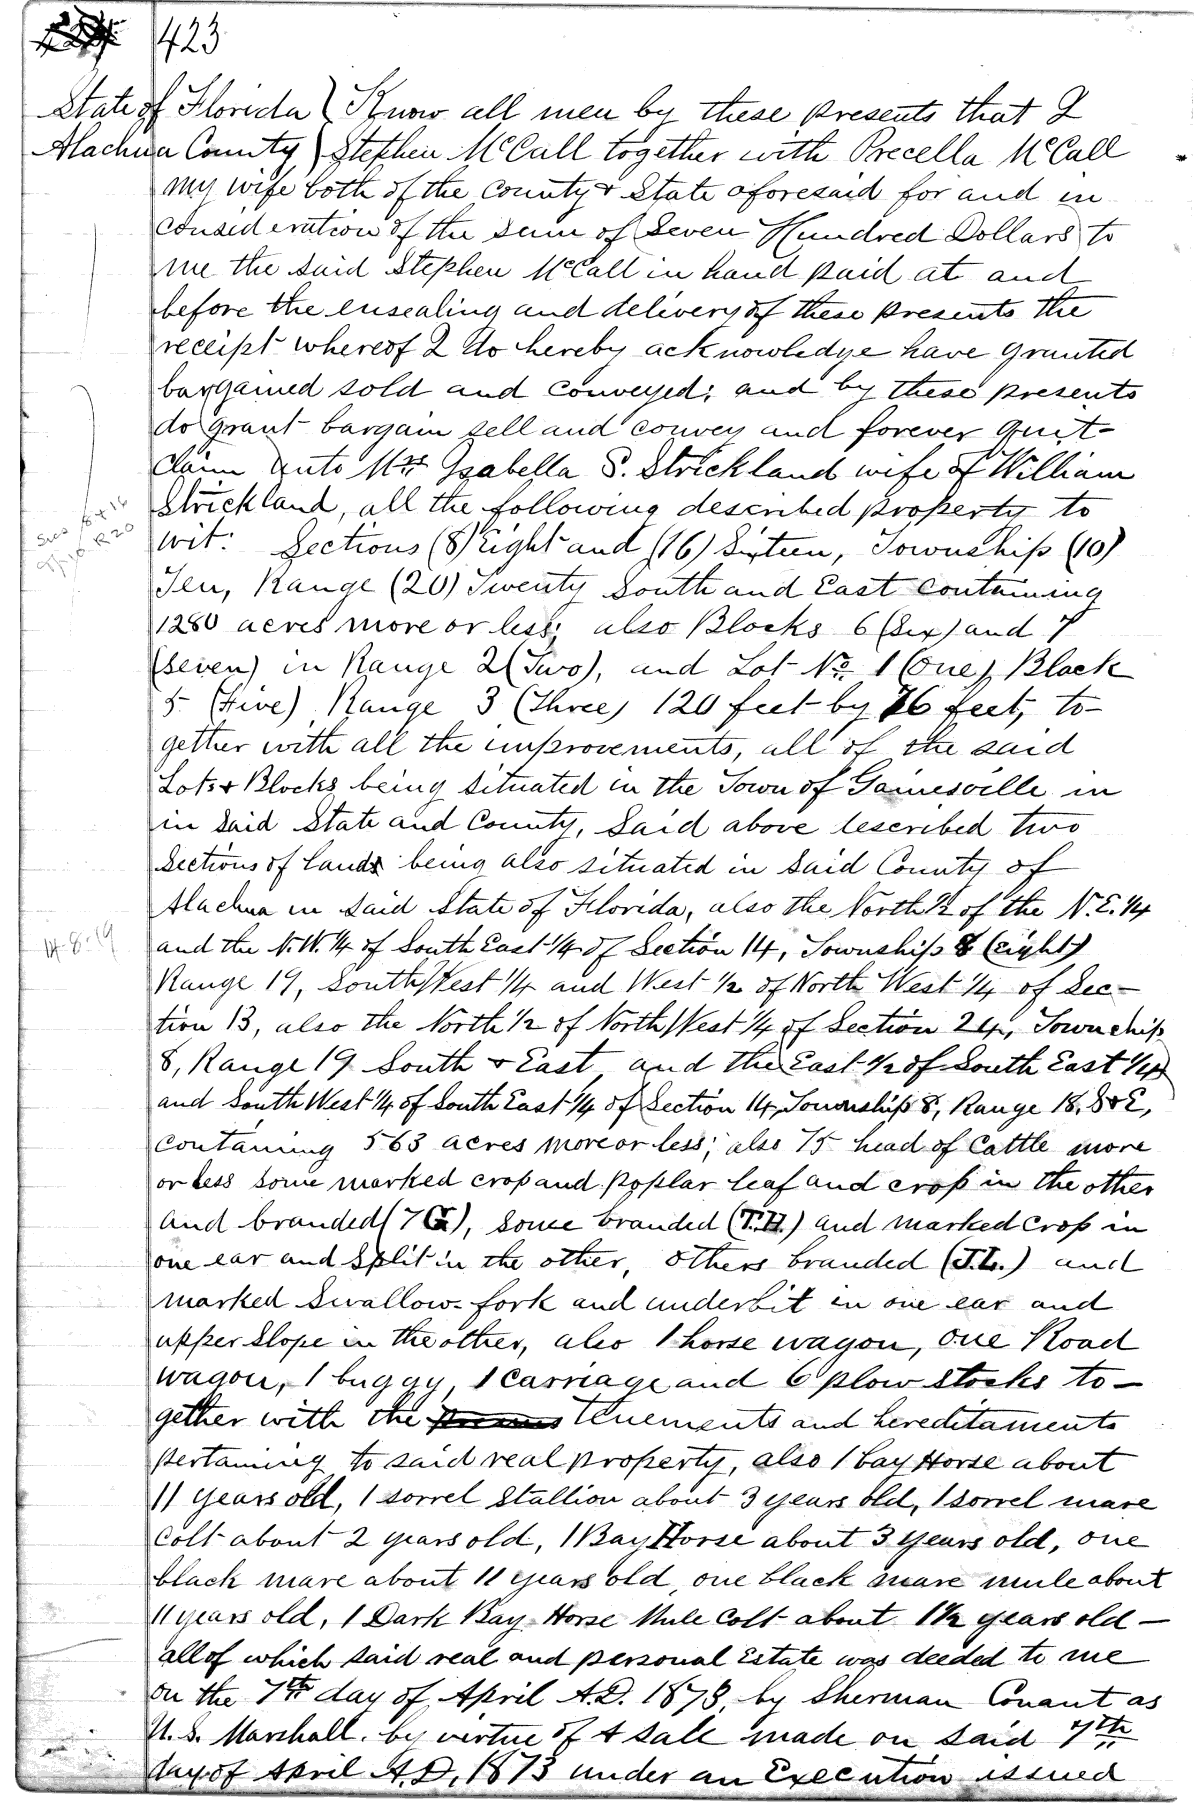 423
State of Florida } Know all men by these presents that I
Alachua County } Stephen McCall together with Precella McCall
my wife both of the County & State aforesaid for and in
consideration of the sum of Seven Hundred Dollars to
me the said Stephen McCall in hand paid at and
before the ensealing and delivery of these presents the
receipt whereof I do hereby acknowledge have granted
bargained sold and conveyed; and by these presents
do grant bargain sell and convey and forever quit-
claim unto Mrs. Isabella S. Strickland wife of William
Strickland, all the following described property to
Secs 8 & 16
Tp 10 R 20
wit: Sections (8) Eight and (16) Sixteen, Township (10)
Ten, Range (20) Twenty South and East containing
1280 acres more or less; also Blocks 6 (Six) and 7
(Seven) in Range 2 (Two), and Lot No. 1 (One), Block
5 (Five) Range 3 (Three) 120 feet by 76 feet, to-
gether with all the improvements, all of the said
Lots & Blocks being situated in the Town of Gainesville in
in said State and County, Said above lescribed two
Sections of lands being also situated in said County of
Alachua in said State of Florida, also the North ½ of the N.E. ¼
14-8-19
and the N.W. ¼ of South East ¼ of Section 14, Township 8 (Eight)
Range 19, South West ¼ and West ½ of North West ¼ of Sec-
tion 13, also the North ½ of North West ¼ of Section 24, Township
8, Range 19 South & East, and the East ½ of South East ¼
and South West ¼ of South East ¼ of Section 14, Township 8, Range 18, S & E,
containing 563 acres more or less; also 75 head of Cattle more
or less some marked crop and poplar leaf and crop in the other
and branded (7G), some branded (T.H.) and marked crop in
one ear and split in the other, others branded (J.L.) and
marked Swallow-fork and underbit in one ear and
upper slope in the other, also 1 horse wagon, one Road
wagon, 1 buggy, 1 carriage and 6 plow stocks to-
gether with the tenements and hereditaments
pertaining to said real property, also 1 bay Horse about
11 years old, 1 sorrel Stallion about 3 years old, 1 sorrel mare
Colt about 2 years old, 1 Bay Horse about 3 years old, one
black mare about 11 years old, one black mare mule about
11 years old, 1 Dark Bay Horse Mule Colt about 1½ years old—
all of which said real and personal Estate was deeded to me
on the 7th day of April A.D. 1873, by Sherman Conant as
U.S. Marshall. by virtue of & sale made on said 7th
day of April A.D. 1873 under an Execution issued